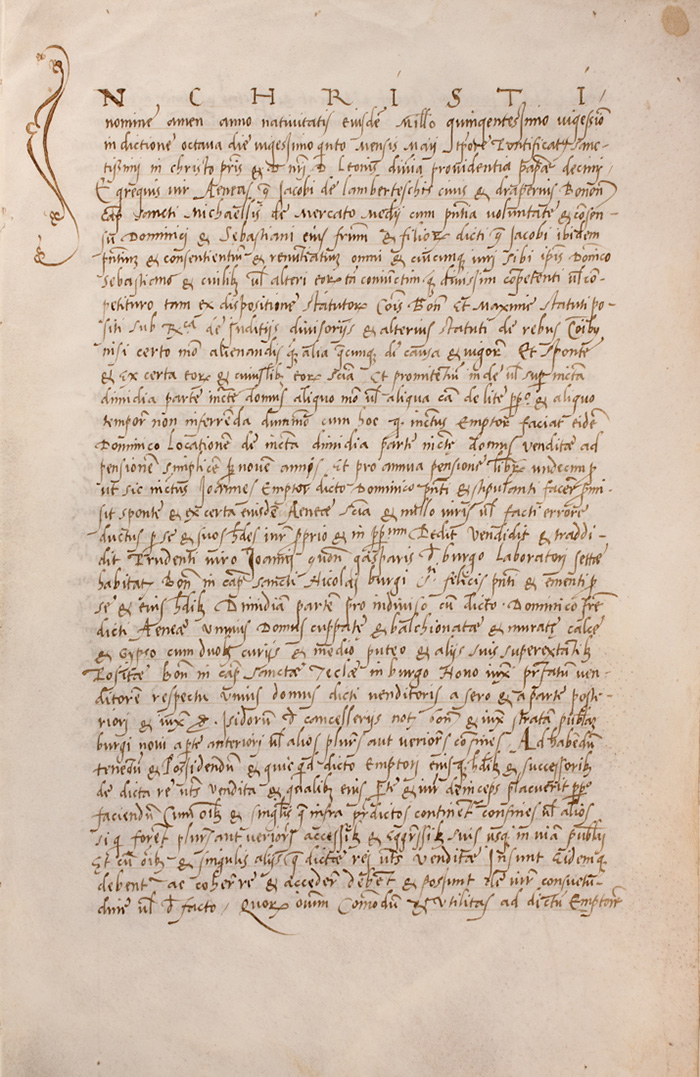 IN CHRISTI
nomine amen anno nativitatis eiusdē Millo quingentesimo vigessiō
indictione octava die vigessimo quinto Mensis Maij tpore Pontificatꝰ sanc-
tissimi in christo pr̄is & D nr̄i D Leonis divīa providentia papæ decimi
Egregius vir Æneas q̄ Jacobi de lamberteschis civis & draperius Bonoñ
Cap̄ Sancti Michaellis de Mercato Medij cum pn̄tia voluntate & cōsen-
su Dominici & Sebastiani eius fr̄um & filioꝝ dicti q̄ Jacobi ibidem
pn̄tium & consentientiū & renūtiatium omni & cuicunqꝫ iuri sibi ipis Domīco
Sebastiano & cuilibꝫ vl̄ alteri eoꝝ tā coniunctim qꝫ divissim competenti vl̄ com-
petituro tam ex dispositione statutoꝝ Cōis Bonꝰ Et Maxime statuti po-
siti sub Rca de Inditijs divisorijs & alterius statuti de rebus Cōibꝰ
nisi certo mō alienandis qꝫ alia q̄cunqꝫ de causa & vigorꝫ Et sponte
& Ex certa eoꝝ & cuiuslibꝫ eoꝝ sciā Et promitentiū inde vl̄ supꝫ incta
dimidia parte incte domus aliquo mō vl̄ aliqua cā de lite pp̄o & aliquo
temporꝫ non inferrenda dummō cum hoc qꝫ inctus Emptor faciat eidē
Dominico Locationem de incta dimidia parte incte Domus venditæ ad
pensionem simplicē p̱ novem annos Et pro annua pensione librꝫ undecim p
ut sic inctus Joannes Emptor dicto Dominico pn̄ti & stipulanti facerꝫ pm̄i-
sit sponte & ex certa eiusdē Æneæ sciā & nullo iuris vl̄ facti errore
ductus p̱ se & suos hd̄es iurꝫ pp̄rio & in pp̄ium Dedit vendidit & traddi-
dit Prudenti viro Joanni quon̄ gasparis d̄ burgo Laboratori settæ
habitat Bon̄ in cap̄ sancti Nicolai burgi sti felicis pn̄ti & ementi p̱
se & eius hd̄ibꝫ Dimidiam partem pro indiviso cū dicto Dominico fr̄e
dicti Æneæ unius Domus cuppatæ & balchionatæ & muratę calce
& gypso cum duobꝫ curijs & medio puteo & alijs suis superextātibꝫ
Positæ bon̄ in cap̄ sanctæ Teclæ in burgo Novo iuxꝫ prefatum ven-
ditorem respectu unius domus dicti venditoris a sero & a parte poste-
riori & iuxꝫ D. Isidorum d̄ cancellerijs notꝫ bon̄ & iuxꝫ stratam publicā
burgi novi a p̱te anteriori vl̄ alios plurꝫs aut veriorꝫs cōfines Ad habēdū
tenendū & Possidendū & quicq̄d dicto Emptori eiusqꝫ hd̄ibꝫ & successoribꝫ
de dicta re ut̄s vendita & qualibꝫ eius p̱te & iurꝫ deinceps placuerit pp̄e
faciendū Cum oībꝫ & singulis q̄ infra predictos continetꝫ confines vl̄ alios
si q̄ forent plurꝫs aut veriorꝫs accessibꝫ & Egressibꝫ suis usqꝫ in viā publicā
Et cū oībꝫ & singulis alijs q̄ dictæ rei ut̄s venditæ Insunt Eidemqꝫ
debentꝫ ac coherꝫre & accederꝫ debent & possunt de iurꝫ consuetu-
dine vl̄ d̄ facto / Quorꝫ oīum Cōmodū & utilitas ad dictū Emptorē